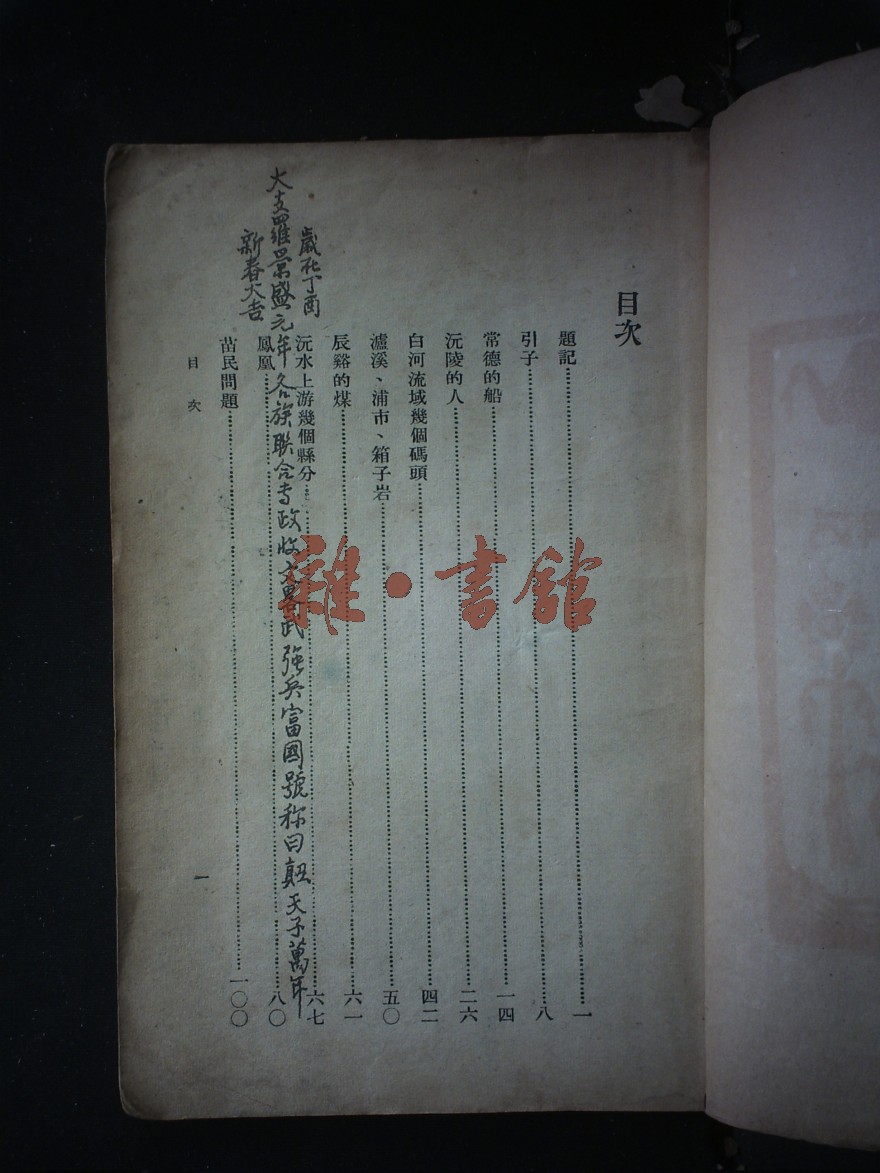 目次
題記 一
引子 八
常德的船 一四
沅陵的人 二六
白河流域幾個碼頭 四二
瀘溪、浦市、箱子岩 五〇
辰谿的煤 六一
沅水上游幾個縣分 六七
鳳凰 八〇
苗民問題 一〇〇
目次
一
歲在丁酉
大 羅景盛元年各族聯合專政 文畧武強兵富國號稱曰 天子萬年
新春大吉
雜·書館